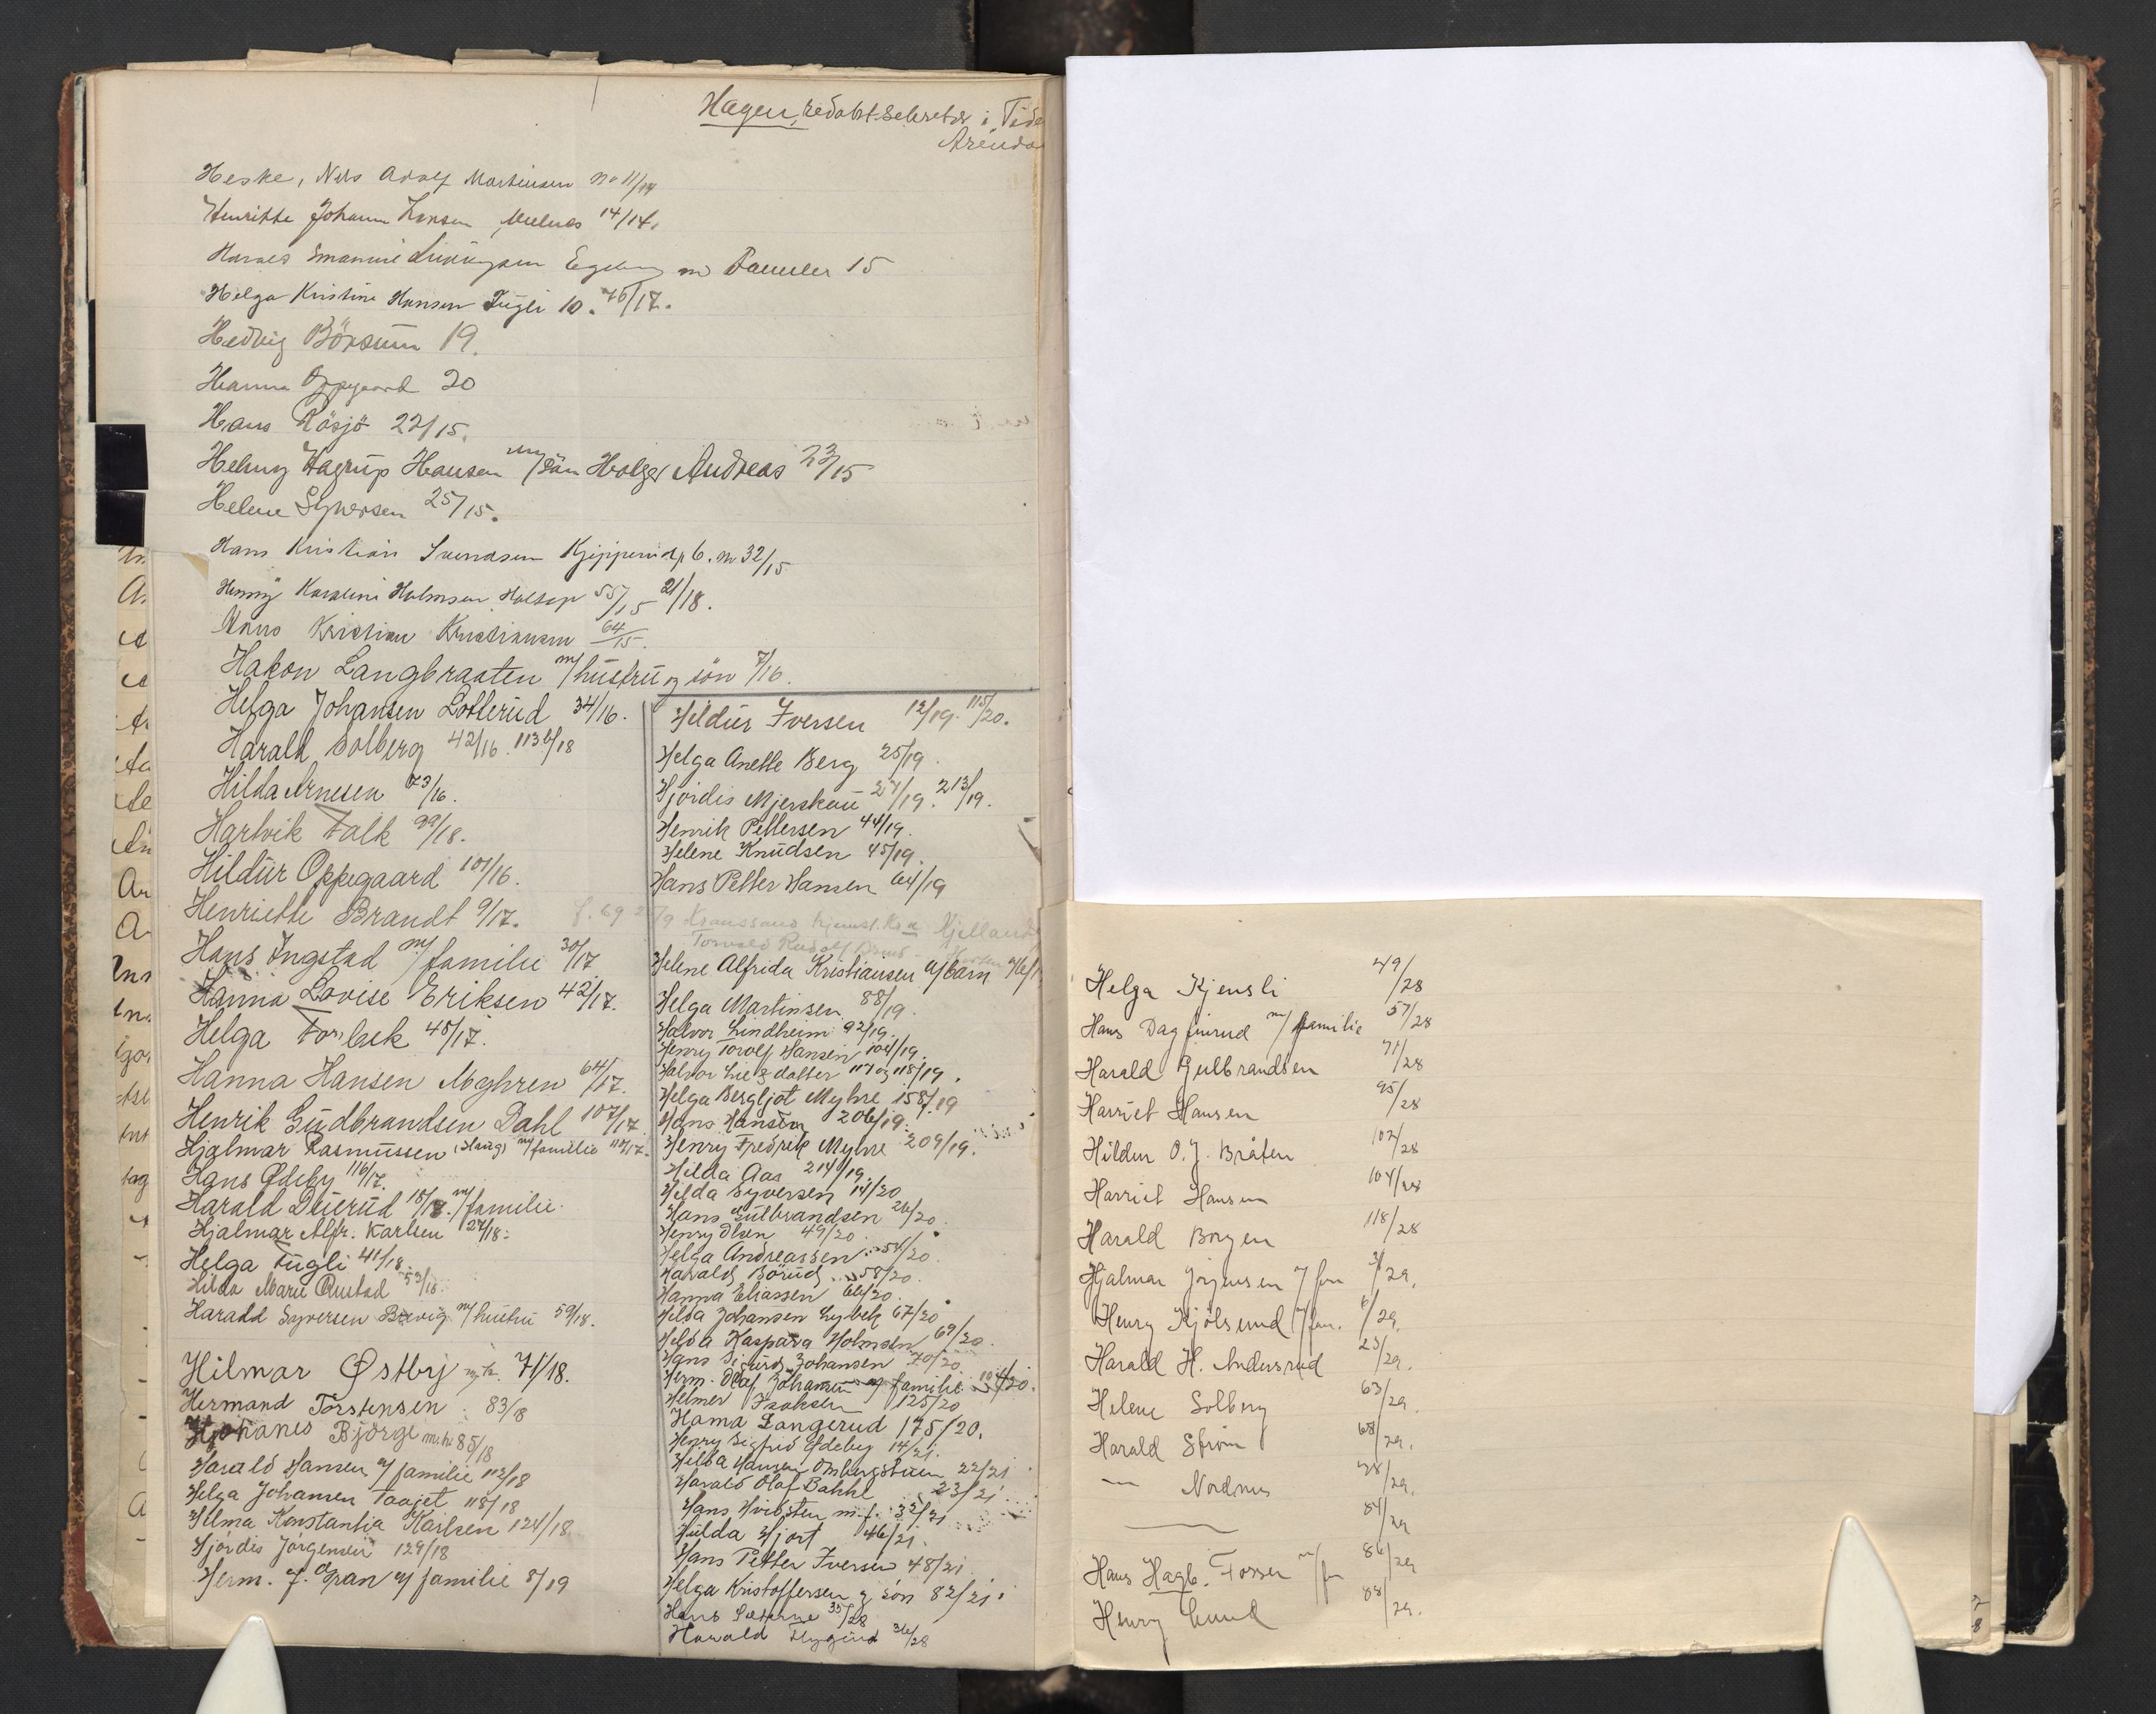 Hagen, redakt.sekretær i Tide
Arenda
Heske, Nils Adolf Martinsen no 11/14
Henritte Johanne Hansen, 14/14.
Emanuel 15
Helga Kristine Hansen Fugli 10. 76/17.
Hedvig Börsum 19.
Hanna Oppegaard 20
Hans Rösjö 22/15.
Helmy Hagrup Hansen m/sön Holger Andreas 23/15
Helene Syversen 25/15.
Hans Kristian Svendsen 6. no 32/15
Henny Karoline Holmsen Holtop 55/15 21/18.
Hans Kristian Kristiansen 64/15.
Hakon Langbraaten m/hustru og sön 7/16.
Helga Johansen Lotterud 34/16.
Harald Solberg 42/16. 113b/18
Hilda Arnesen 73/16.
Hartvik Falk 99/18.
Hildur Oppegaard 101/16.
Henriette Brandt 9/17.
Hans Ingstad m/familie 30/17
Hanna Lovise Eriksen 42/17.
Helga Fornbek 45/17.
Hanna Hansen Myhren 64/17.
Henrik Gudbrandsen Dahl 107/17.
Hjalmar Rasmussen (Haug) m/familie 112/17.
Hans Ødeby 116/17.
Harald Duerud 18/18. m/familie.
Hjalmar Alfr. Karlsen 27/18.
Helga Fugli 41/18
Hilda Marie Rustad 53/18.
Harald Syversen m/hustru 59/18.
Hilmar Østby m/h. 71/18.
Hermand Torstensen 83/18
Johanes Björge m.h. 85/18
Harald Hansen m/familie 112/18
Helga Johansen Taajet 118/18
Hilma Konstantia Karlsen 124/18
Hjördis Jörgensen 129/18
Herm. J. Gran m/familie 8/19
Hildur Iversen 12/19. 115/20.
Helga Anette Berg 25/19.
Hjördis Mjerskau 27/19. 213/19.
Henrik Pettersen 44/19.
Helene Knudsen 45/19.
Hans Petter Hansen 64/19
Helene Alfrida Kristiansen m/barn
Helga Martinsen 88/19.
Halvor Lindheim 92/19.
Henry Torolf Hansen 104/19.
Halvor Lie & datter 117 og 118/19.
Helga Bergljot Myhre 158/19
Hans Hansen 206/19.
Henry Fredrik Myhre 209/19.
Hilda Aas 214/19.
Hilda Syversen 14/20
Hans Gulbrandsen 26/20.
Henry Olsen 49/20
Helga Andreassen 54/20.
Harald Börud 58/20.
Hanna Eliassen 66/20.
Hilda Johansen Lybek 67/20
Hilda Kaspara Holmsen 69/20.
Hans Sigurd Johansen 70/20.
Herm. Olaf Johansen m/familie 104/20.
Helmer Isaksen 125/20
Hanna Langerud 175/20.
Henry Sigfrid Ødeby 14/21.
Hilda Hansen Ombergstuen 22/21
Harald Olaf Bakke 23/21
Hans Hvidsten m.f. 32/21
Hulda Hjort 46/21.
Hans Petter Iversen 48/21
Helga Kristoffersen & sön 82/21.
Hans Sæterne 35/28
Harald Flygind 36/28
Helga Kjensli 49/28
Hans Dagfinrud m/familie 57/28
Harald Gulbrandsen 71/28
Harriet Hansen 95/28
Hildur O. J. Bråten 102/28
Harriet Hansen 104/28
Harald Borgen 118/28
Hjalmar Jörgensen m/fam 3/29.
Henry Kjölsrud m/fam. 6/29.
Harald H. Andersrud 23/29.
Helene Solberg 63/29.
Harald Ström 68/29.
— Nordnes 78/29.
— 84/29
Hans Hagb. Fosser m/f 86/29
Henry Lund 88/29.